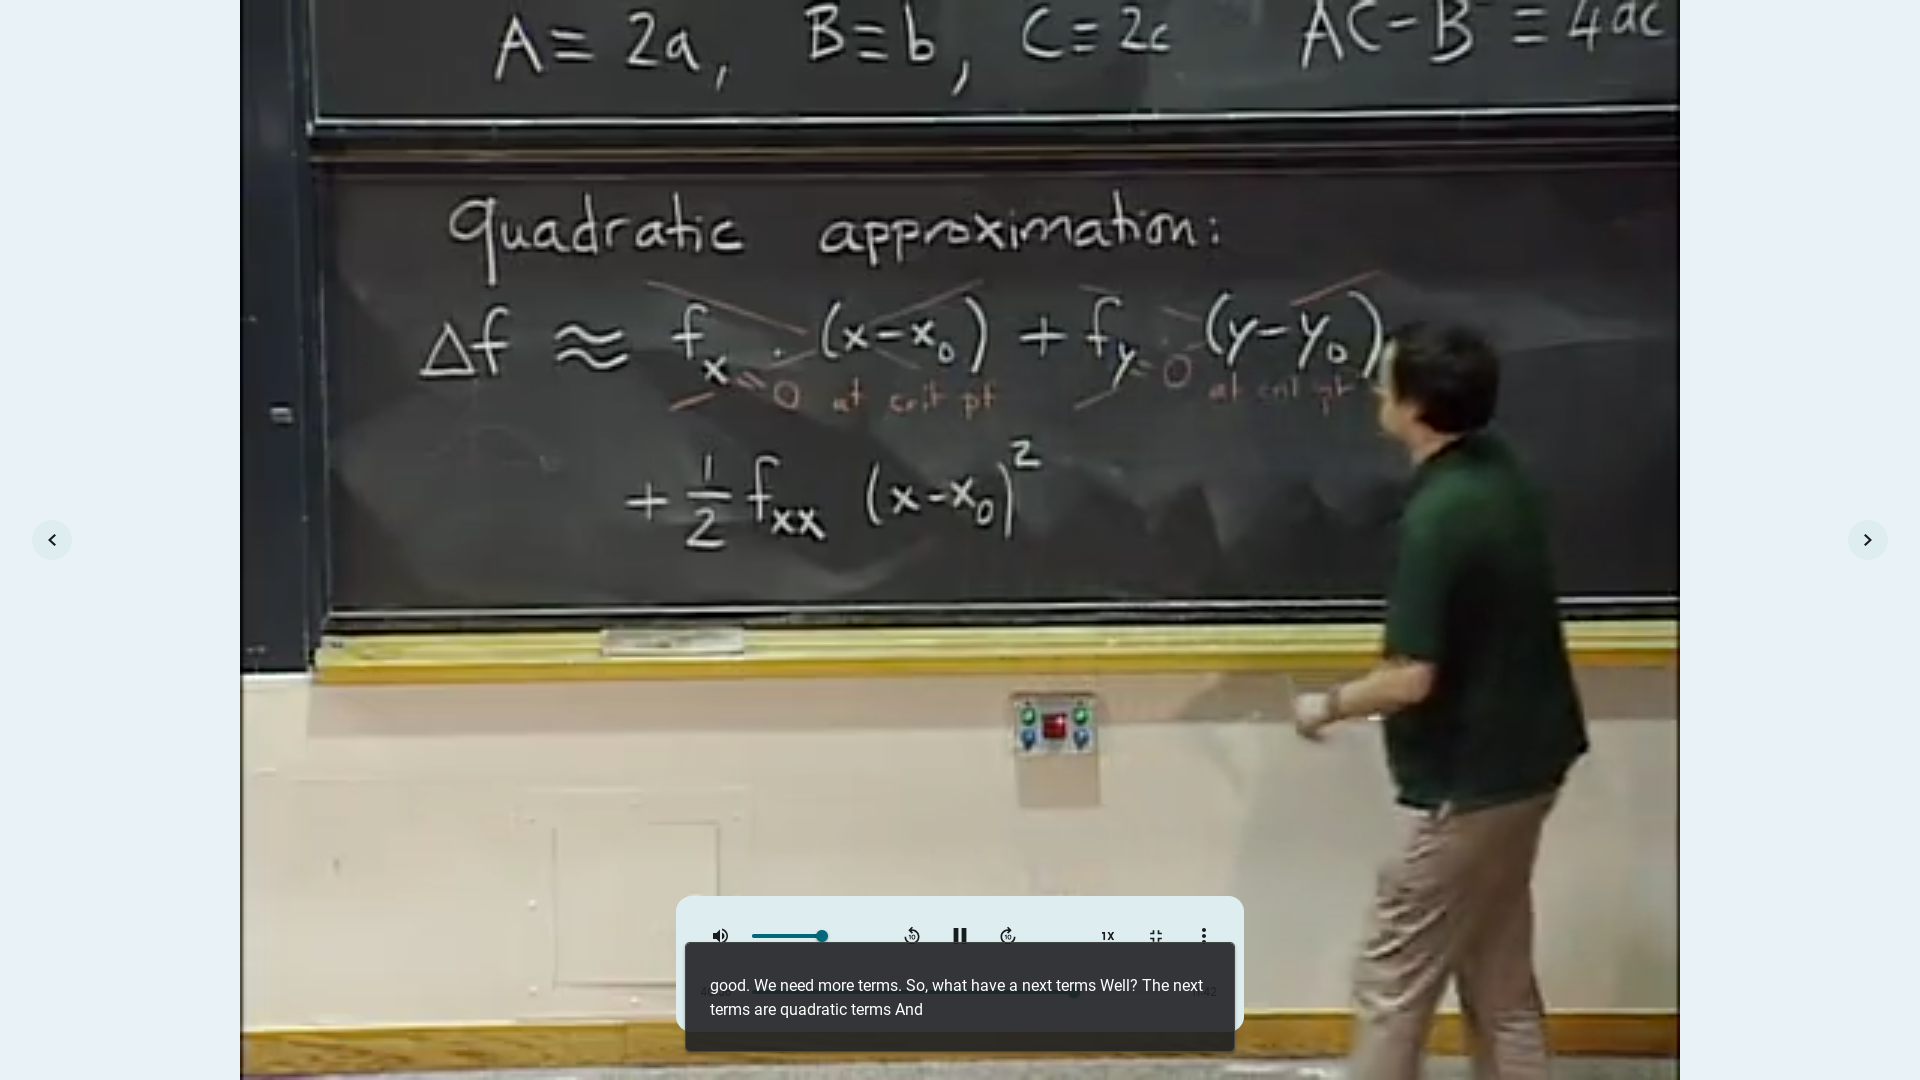 A ≡ 2a, B ≡ b, C ≡ 2c AC - B = 4ac
quadratic approximation:
Δf ≈ fx · (x-x0) + fy · (y-y0)
= 0 at crit pt = 0 at crit pt
+ 1/2 fxx (x-x0)²
1X
good. We need more terms. So, what have a next terms Well? The next
terms are quadratic terms And